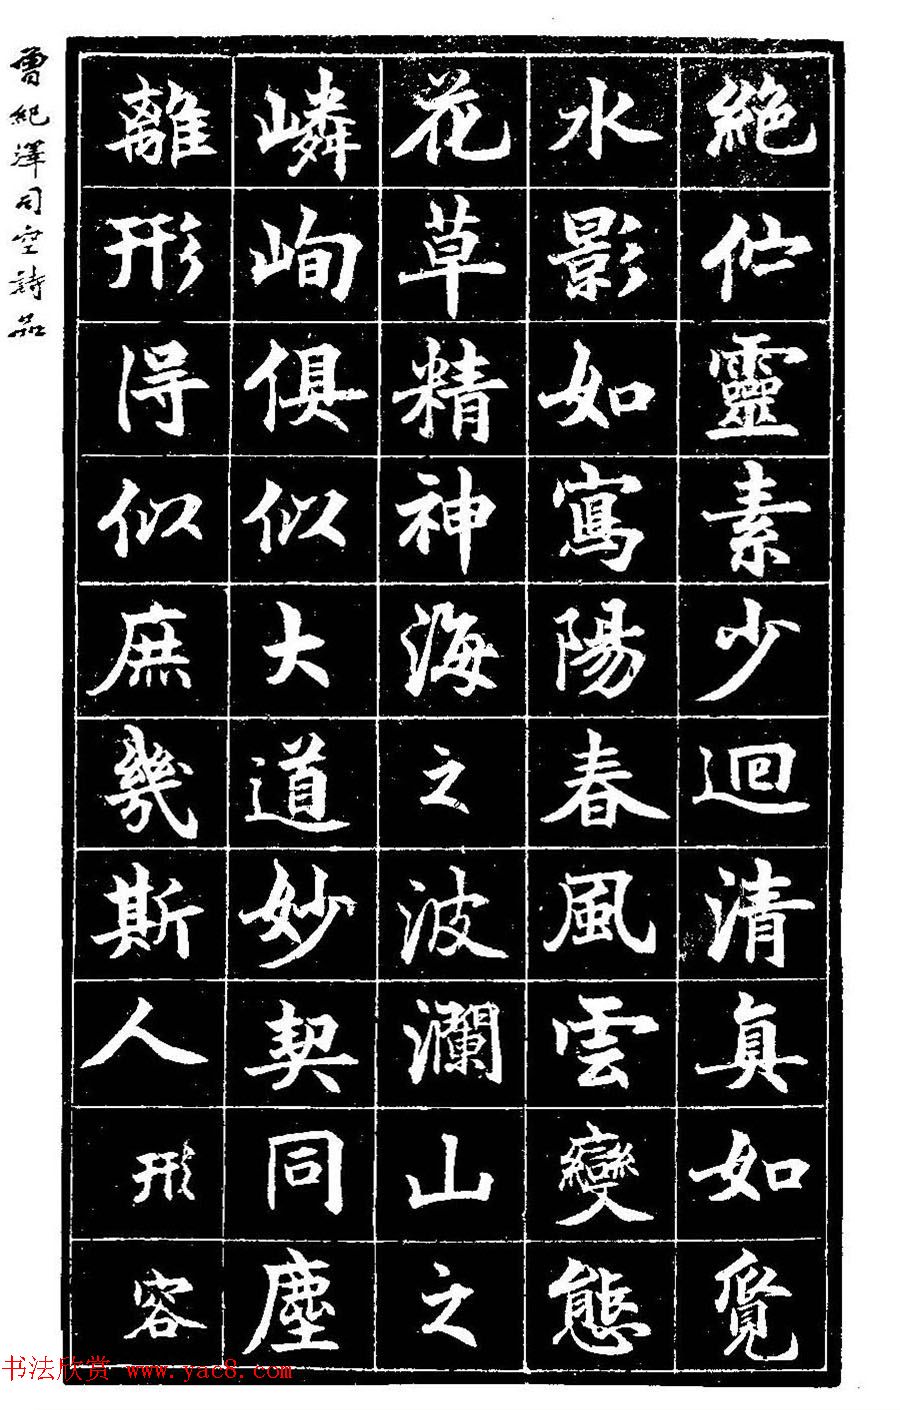 曾紀澤司空詩品
絕佇靈素少迴清真如覓
水影如寫陽春風雲變態
花草精神海之波瀾山之
嶙峋俱似大道妙契同塵
離形得似庶幾斯人形容
书法欣赏 www.yac8.com